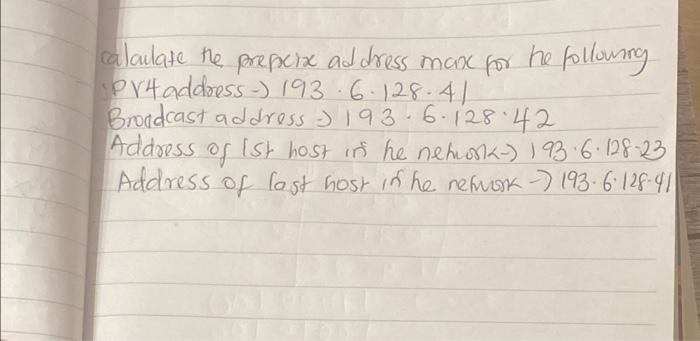 calculate the prepcix address manx for he following
IPV4 address -> 193.6.128.41
Broadcast address -> 193.6.128.42
Address of 1st host in he network -> 193.6.128.23
Address of last host in he network -> 193.6.128.41